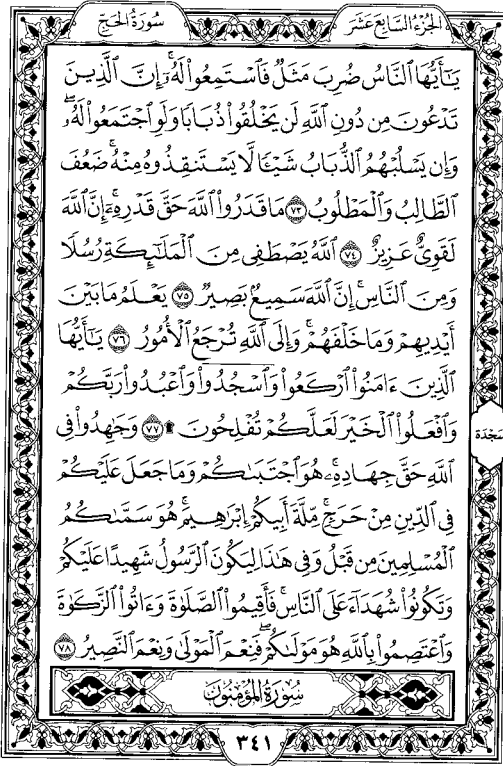 الجزء السابع عشر
سورة الحج
يَٰٓأَيُّهَا ٱلنَّاسُ ضُرِبَ مَثَلٌ فَٱسْتَمِعُوا۟ لَهُۥٓ ۚ إِنَّ ٱلَّذِينَ
تَدْعُونَ مِن دُونِ ٱللَّهِ لَن يَخْلُقُوا۟ ذُبَابًا وَلَوِ ٱجْتَمَعُوا۟ لَهُۥ ۖ
وَإِن يَسْلُبْهُمُ ٱلذُّبَابُ شَيْـًٔا لَّا يَسْتَنقِذُوهُ مِنْهُ ۚ ضَعُفَ
ٱلطَّالِبُ وَٱلْمَطْلُوبُ ٧٣ مَا قَدَرُوا۟ ٱللَّهَ حَقَّ قَدْرِهِۦٓ ۗ إِنَّ ٱللَّهَ
لَقَوِىٌّ عَزِيزٌ ٧٤ ٱللَّهُ يَصْطَفِى مِنَ ٱلْمَلَٰٓئِكَةِ رُسُلًا
وَمِنَ ٱلنَّاسِ ۚ إِنَّ ٱللَّهَ سَمِيعٌۢ بَصِيرٌ ٧٥ يَعْلَمُ مَا بَيْنَ
أَيْدِيهِمْ وَمَا خَلْفَهُمْ ۗ وَإِلَى ٱللَّهِ تُرْجَعُ ٱلْأُمُورُ ٧٦ يَٰٓأَيُّهَا
ٱلَّذِينَ ءَامَنُوا۟ ٱرْكَعُوا۟ وَٱسْجُدُوا۟ وَٱعْبُدُوا۟ رَبَّكُمْ
وَٱفْعَلُوا۟ ٱلْخَيْرَ لَعَلَّكُمْ تُفْلِحُونَ ۩ ٧٧ وَجَٰهِدُوا۟ فِى
سجدة
ٱللَّهِ حَقَّ جِهَادِهِۦ ۚ هُوَ ٱجْتَبَىٰكُمْ وَمَا جَعَلَ عَلَيْكُمْ
فِى ٱلدِّينِ مِنْ حَرَجٍ ۚ مِّلَّةَ أَبِيكُمْ إِبْرَٰهِيمَ ۚ هُوَ سَمَّىٰكُمُ
ٱلْمُسْلِمِينَ مِن قَبْلُ وَفِى هَٰذَا لِيَكُونَ ٱلرَّسُولُ شَهِيدًا عَلَيْكُمْ
وَتَكُونُوا۟ شُهَدَآءَ عَلَى ٱلنَّاسِ ۚ فَأَقِيمُوا۟ ٱلصَّلَوٰةَ وَءَاتُوا۟ ٱلزَّكَوٰةَ
وَٱعْتَصِمُوا۟ بِٱللَّهِ هُوَ مَوْلَىٰكُمْ ۖ فَنِعْمَ ٱلْمَوْلَىٰ وَنِعْمَ ٱلنَّصِيرُ ٧٨
سورة المؤمنون
٣٤١